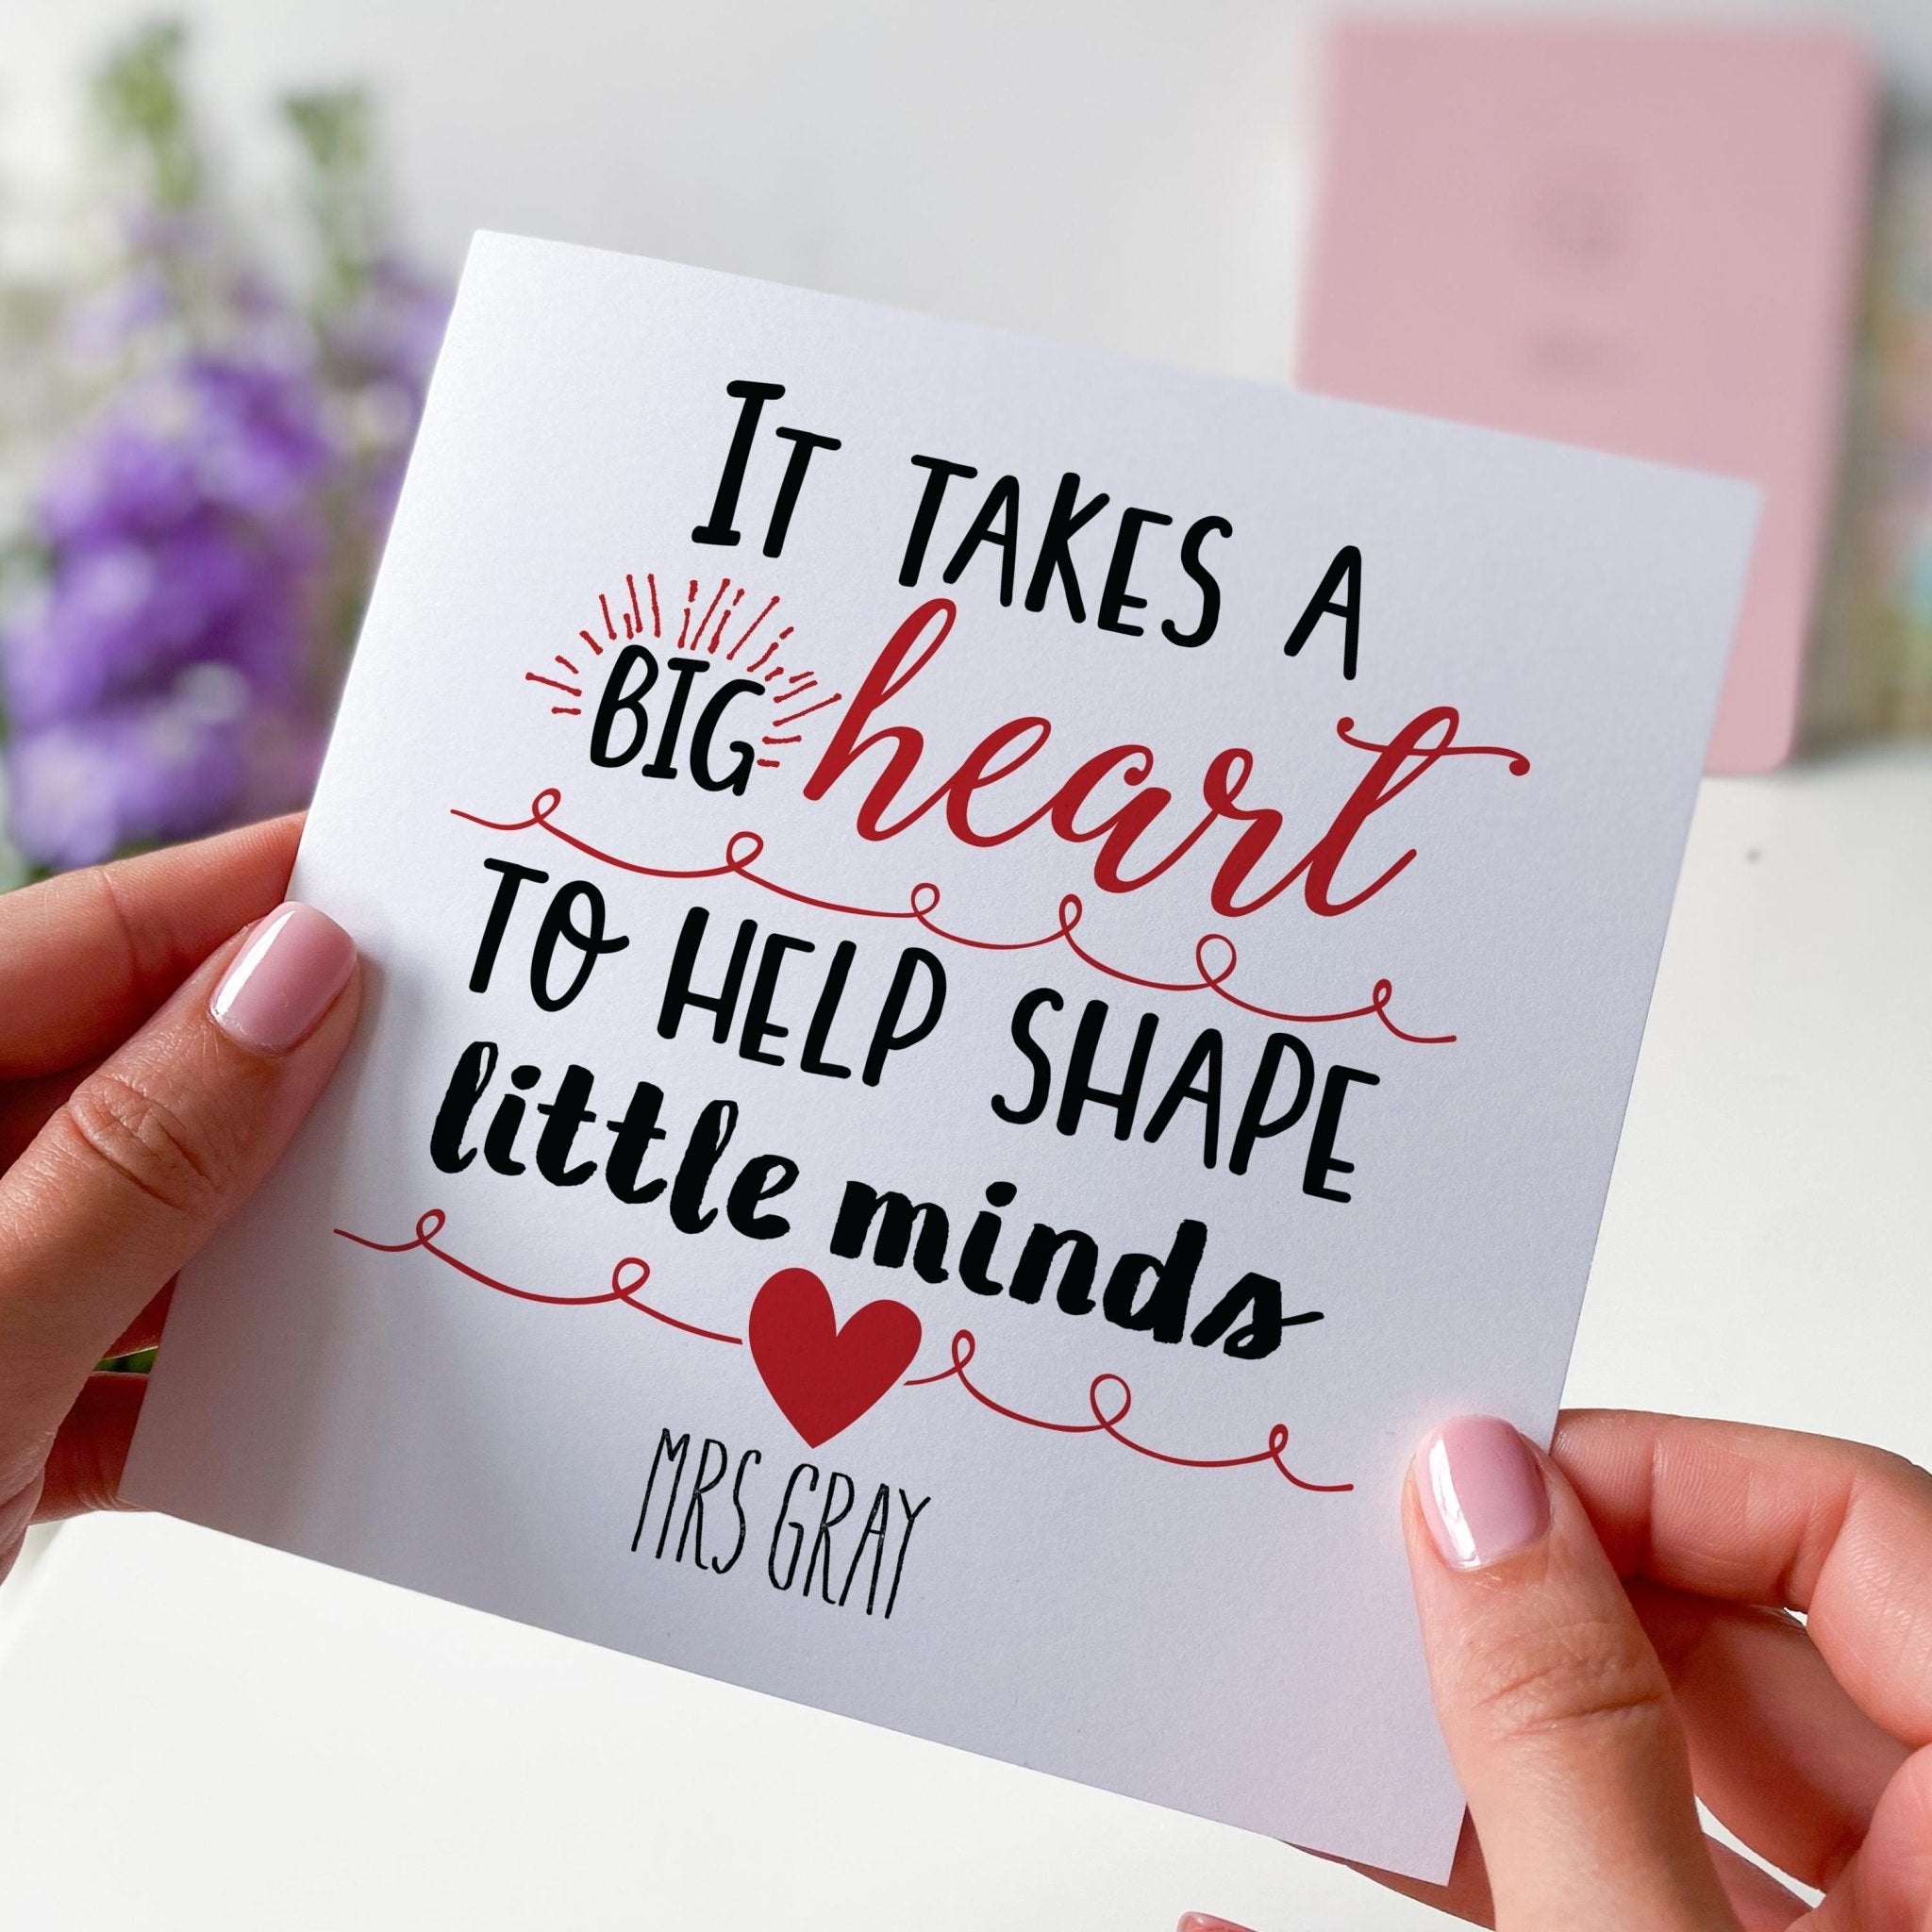 IT TAKES A
BIG heart
TO HELP SHAPE
little minds
MRS GRAY